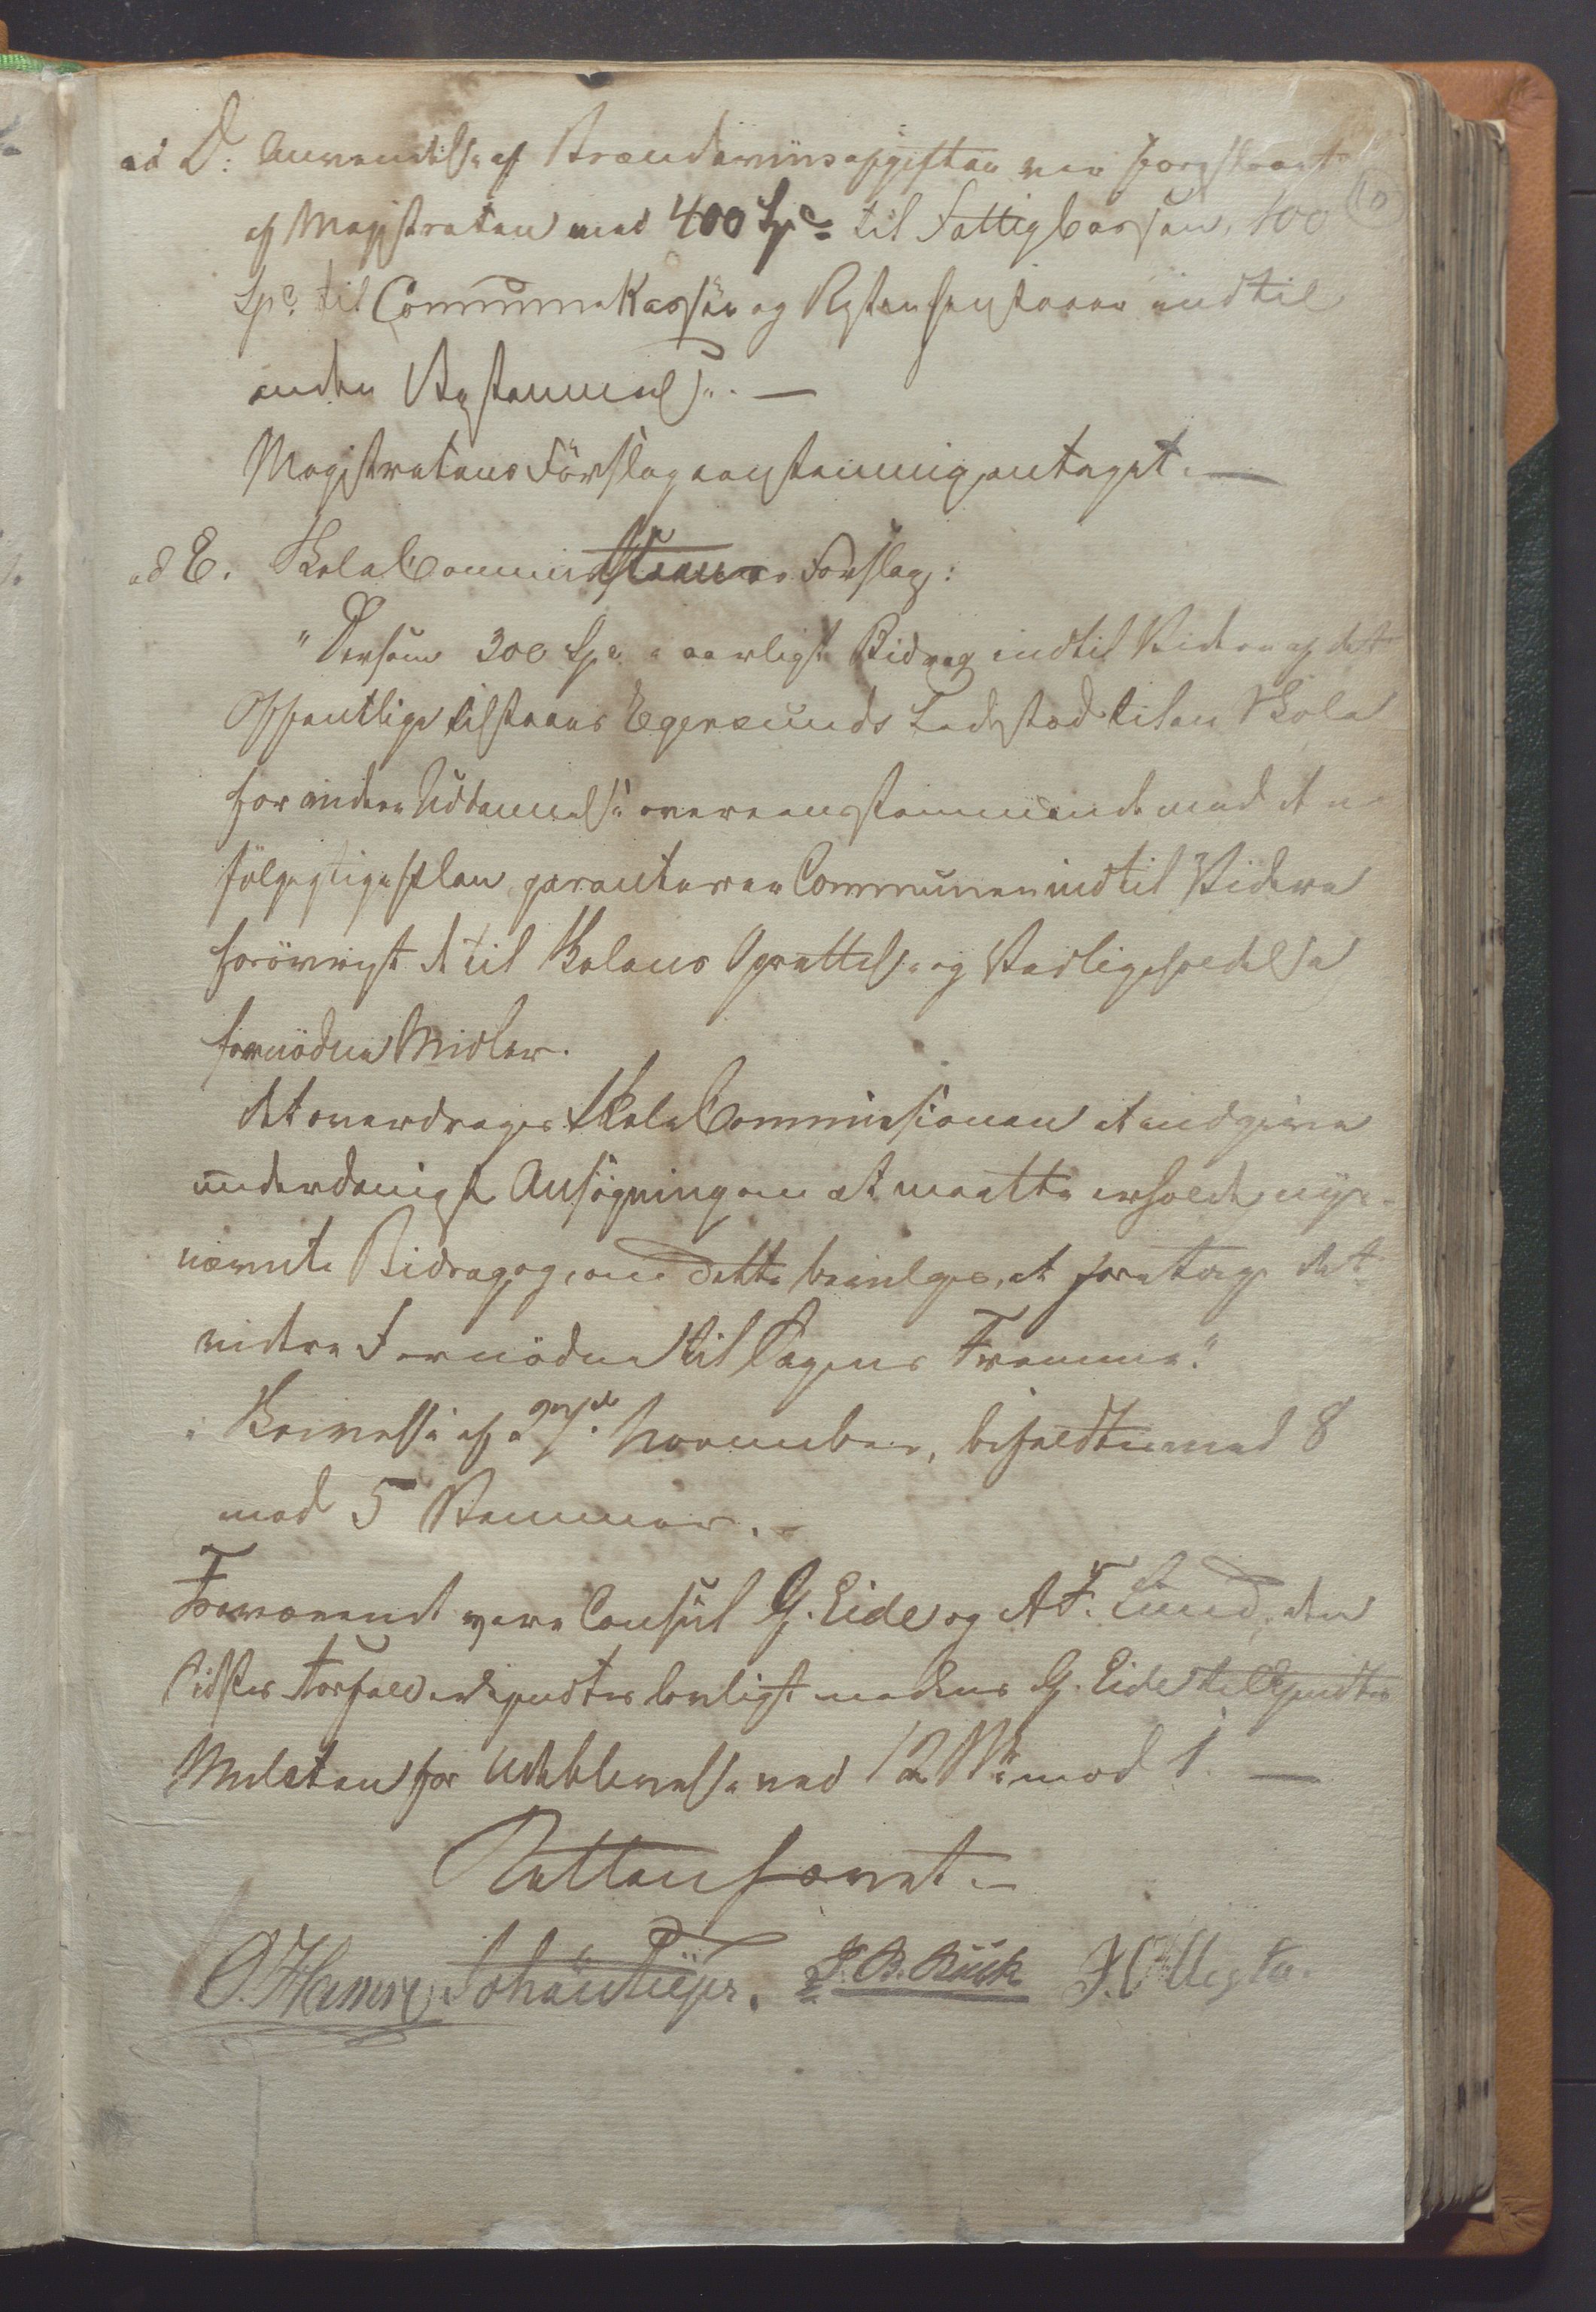 ad D: Anvendelse af Brændeviinsafgiften var foreslaaet
af Magistraten med 400 Spd til Fattigkassen, 100
10
Spd til Communekassen og Resten henstaaer indtil
anden Bestemmelse. —
Magistratens Forslag eenstemmig antaget. —
ad E. SkoleCommissionens Forslag:
"Dersom 300 Spd aarligt Bidrag indtil Videre af det
Offentlige tilstaaes Egersunds Ladested til en Skole
for videre Uddannelse overeensstemmende med den
følgagtige Plan, garanterer Communen indtil Videre
forøvrigt de til Skolens Oprettelse og Vedligeholdelse
fornødne Midler.
Det overdrages SkoleCommissionen at indgive
underdanigst Ansøgning om at maatte erholde mye-
nævnte Bidrag og, om dette bevilges, at foretage det
videre Fornødne til Sagens Fremme."
Skrivelse af 27de November, bifaldtes med 8
mod 5 Stemmer. -
Fraværende vare Consul G. Eide og A F. Lund, den
Sidstes Forfald ansaaes lovligt medens G. Eide
Mulcten for Udeblivelse ved 12 St. mod 1. —
Retten hævet. —
O. Hamre Johan Feyer. J. B. Puck